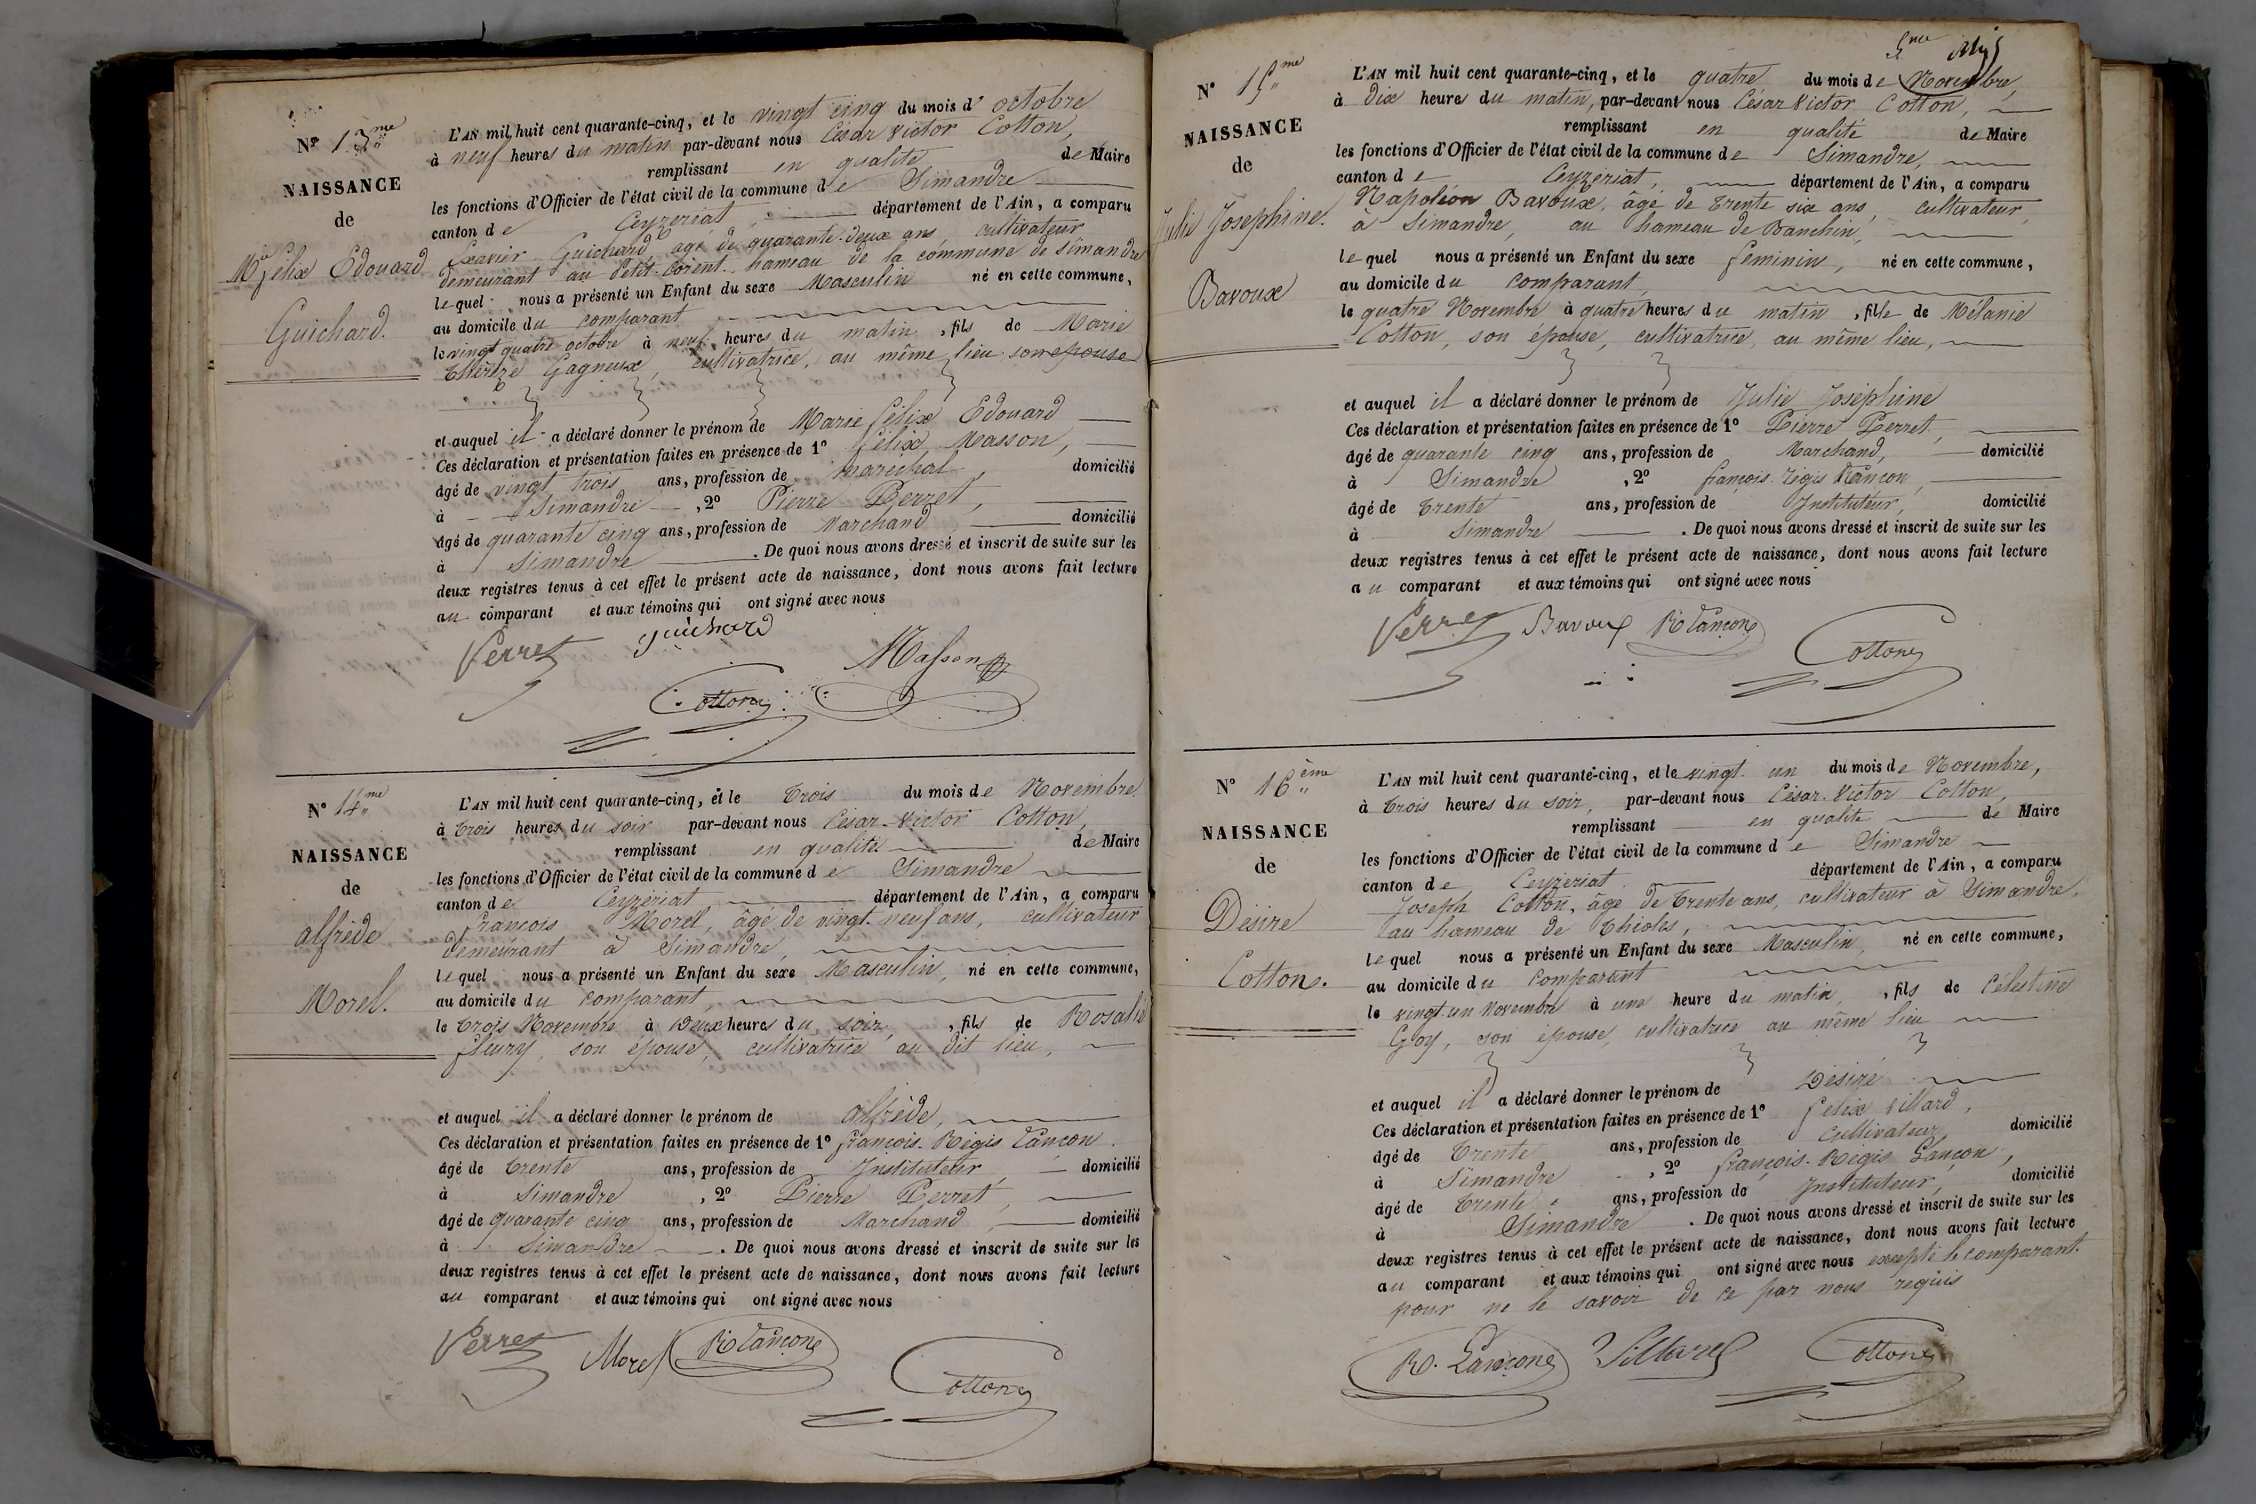 Nº 13.me
NAISSANCE
de
Mie félix Edouard
Guichard.
L'AN mil huit cent quarante-cinq, et le vingt cinq du mois d' octobre
à neuf heures du matin par-devant nous César Victor Cotton,
remplissant en qualité de Maire
les fonctions d'Officier de l'état civil de la commune de Simandre
canton de Ceyzériat, département de l'Ain, a comparu
Xavier Guichard agé de quarante-deux ans, cultivateur
demeurant au Petit-Corent hameau de la commune de Simandre
lequel nous a présenté un Enfant du sexe Masculin né en cette commune,
au domicile du comparant
le vingt quatre octobre à neuf heures du matin, fils de Marie
Thérèze Gagneux, cultivatrice, au même lieu son epouse
et auquel il a déclaré donner le prénom de Marie félix Edouard
Ces déclaration et présentation faites en présence de 1º félix Masson,
âgé de vingt trois ans, profession de marechal, domicilié
à Simandre, 2º Pierre Perret,
âgé de quarante cinq ans, profession de Marchand domicilié
à Simandre. De quoi nous avons dressé et inscrit de suite sur les
deux registres tenus à cet effet le présent acte de naissance, dont nous avons fait lecture
au comparant et aux témoins qui ont signé avec nous
Perret guichard Masson
Cotton
Nº 14.me
NAISSANCE
de
alfrède
Morel.
L'AN mil huit cent quarante-cinq, et le trois du mois de Novembre
à trois heures du soir par-devant nous César-Victor Cotton,
remplissant en qualité de Maire
les fonctions d'Officier de l'état civil de la commune de Simandre
canton de Ceyzériat département de l'Ain, a comparu
françois Morel, âgé de vingt-neuf ans, cultivateur
demeurant à Simandre,
lequel nous a présenté un Enfant du sexe Masculin, né en cette commune,
au domicile du comparant,
le trois Novembre à Deux heures du soir, fils de Rosalie
fleury, son épouse, cultivatrice au dit lieu,
et auquel il a déclaré donner le prénom de alfrède,
Ces déclaration et présentation faites en présence de 1º françois-Régis Lançon.
âgé de trente ans, profession de Instituteur, domicilié
à Simandre, 2º Pierre Perret,
âgé de quarante cinq ans, profession de Marchand, domicilié
à Simandre. De quoi nous avons dressé et inscrit de suite sur les
deux registres tenus à cet effet le présent acte de naissance, dont nous avons fait lecture
au comparant et aux témoins qui ont signé avec nous
Perret Morel R Lançon
Cotton
Nº 15.me
NAISSANCE
de
Julie Joséphine.
Bavoux
L'AN mil huit cent quarante-cinq, et le quatre du mois de Novembre,
à dix heures du matin, par-devant nous César Victor Cotton,
remplissant en qualité de Maire
les fonctions d'Officier de l'état civil de la commune de Simandre,
canton de Ceyzériat, département de l'Ain, a comparu
Napoléon Bavoux, âgé de trente six ans, cultivateur
à Simandre, au hameau de Banchin,
lequel nous a présenté un Enfant du sexe féminin, né en cette commune,
au domicile du comparant,
le quatre Novembre à quatre heures du matin, fille de Mélanie
Cotton, son épouse, cultivatrice, au même lieu,
et auquel il a déclaré donner le prénom de Julie Joséphine
Ces déclaration et présentation faites en présence de 1º Pierre Perret,
âgé de quarante cinq ans, profession de Marchand, domicilié
à Simandre, 2º françois-Régis Lançon,
âgé de trente ans, profession de Instituteur, domicilié
à Simandre. De quoi nous avons dressé et inscrit de suite sur les
deux registres tenus à cet effet le présent acte de naissance, dont nous avons fait lecture
au comparant et aux témoins qui ont signé avec nous
Perret Bavoux R Lançon
Cotton
Nº 16.ème
NAISSANCE
de
Désiré
Cotton.
L'AN mil huit cent quarante-cinq, et le vingt-un du mois de Novembre,
à trois heures du soir, par-devant nous César-Victor Cotton,
remplissant en qualité de Maire
les fonctions d'Officier de l'état civil de la commune de Simandre
canton de Ceyzériat département de l'Ain, a comparu
Joseph Cotton, âgé de trente ans, cultivateur à Simandre,
au hameau de Thioles,
lequel nous a présenté un Enfant du sexe Masculin, né en cette commune,
au domicile du comparant
le vingt-un Novembre à une heure du matin, fils de Célestine
Goy, son épouse, cultivatrice au même lieu
et auquel il a déclaré donner le prénom de Désiré
Ces déclaration et présentation faites en présence de 1º félix Villard,
âgé de trente ans, profession de Cultivateur, domicilié
à Simandre, 2º françois-Régis Lançon,
âgé de trente ans, profession de Instituteur, domicilié
à Simandre. De quoi nous avons dressé et inscrit de suite sur les
deux registres tenus à cet effet le présent acte de naissance, dont nous avons fait lecture
au comparant et aux témoins qui ont signé avec nous excepté le comparant.
pour ne le savoir de ce par nous requis
R. Lançon Villard Cotton